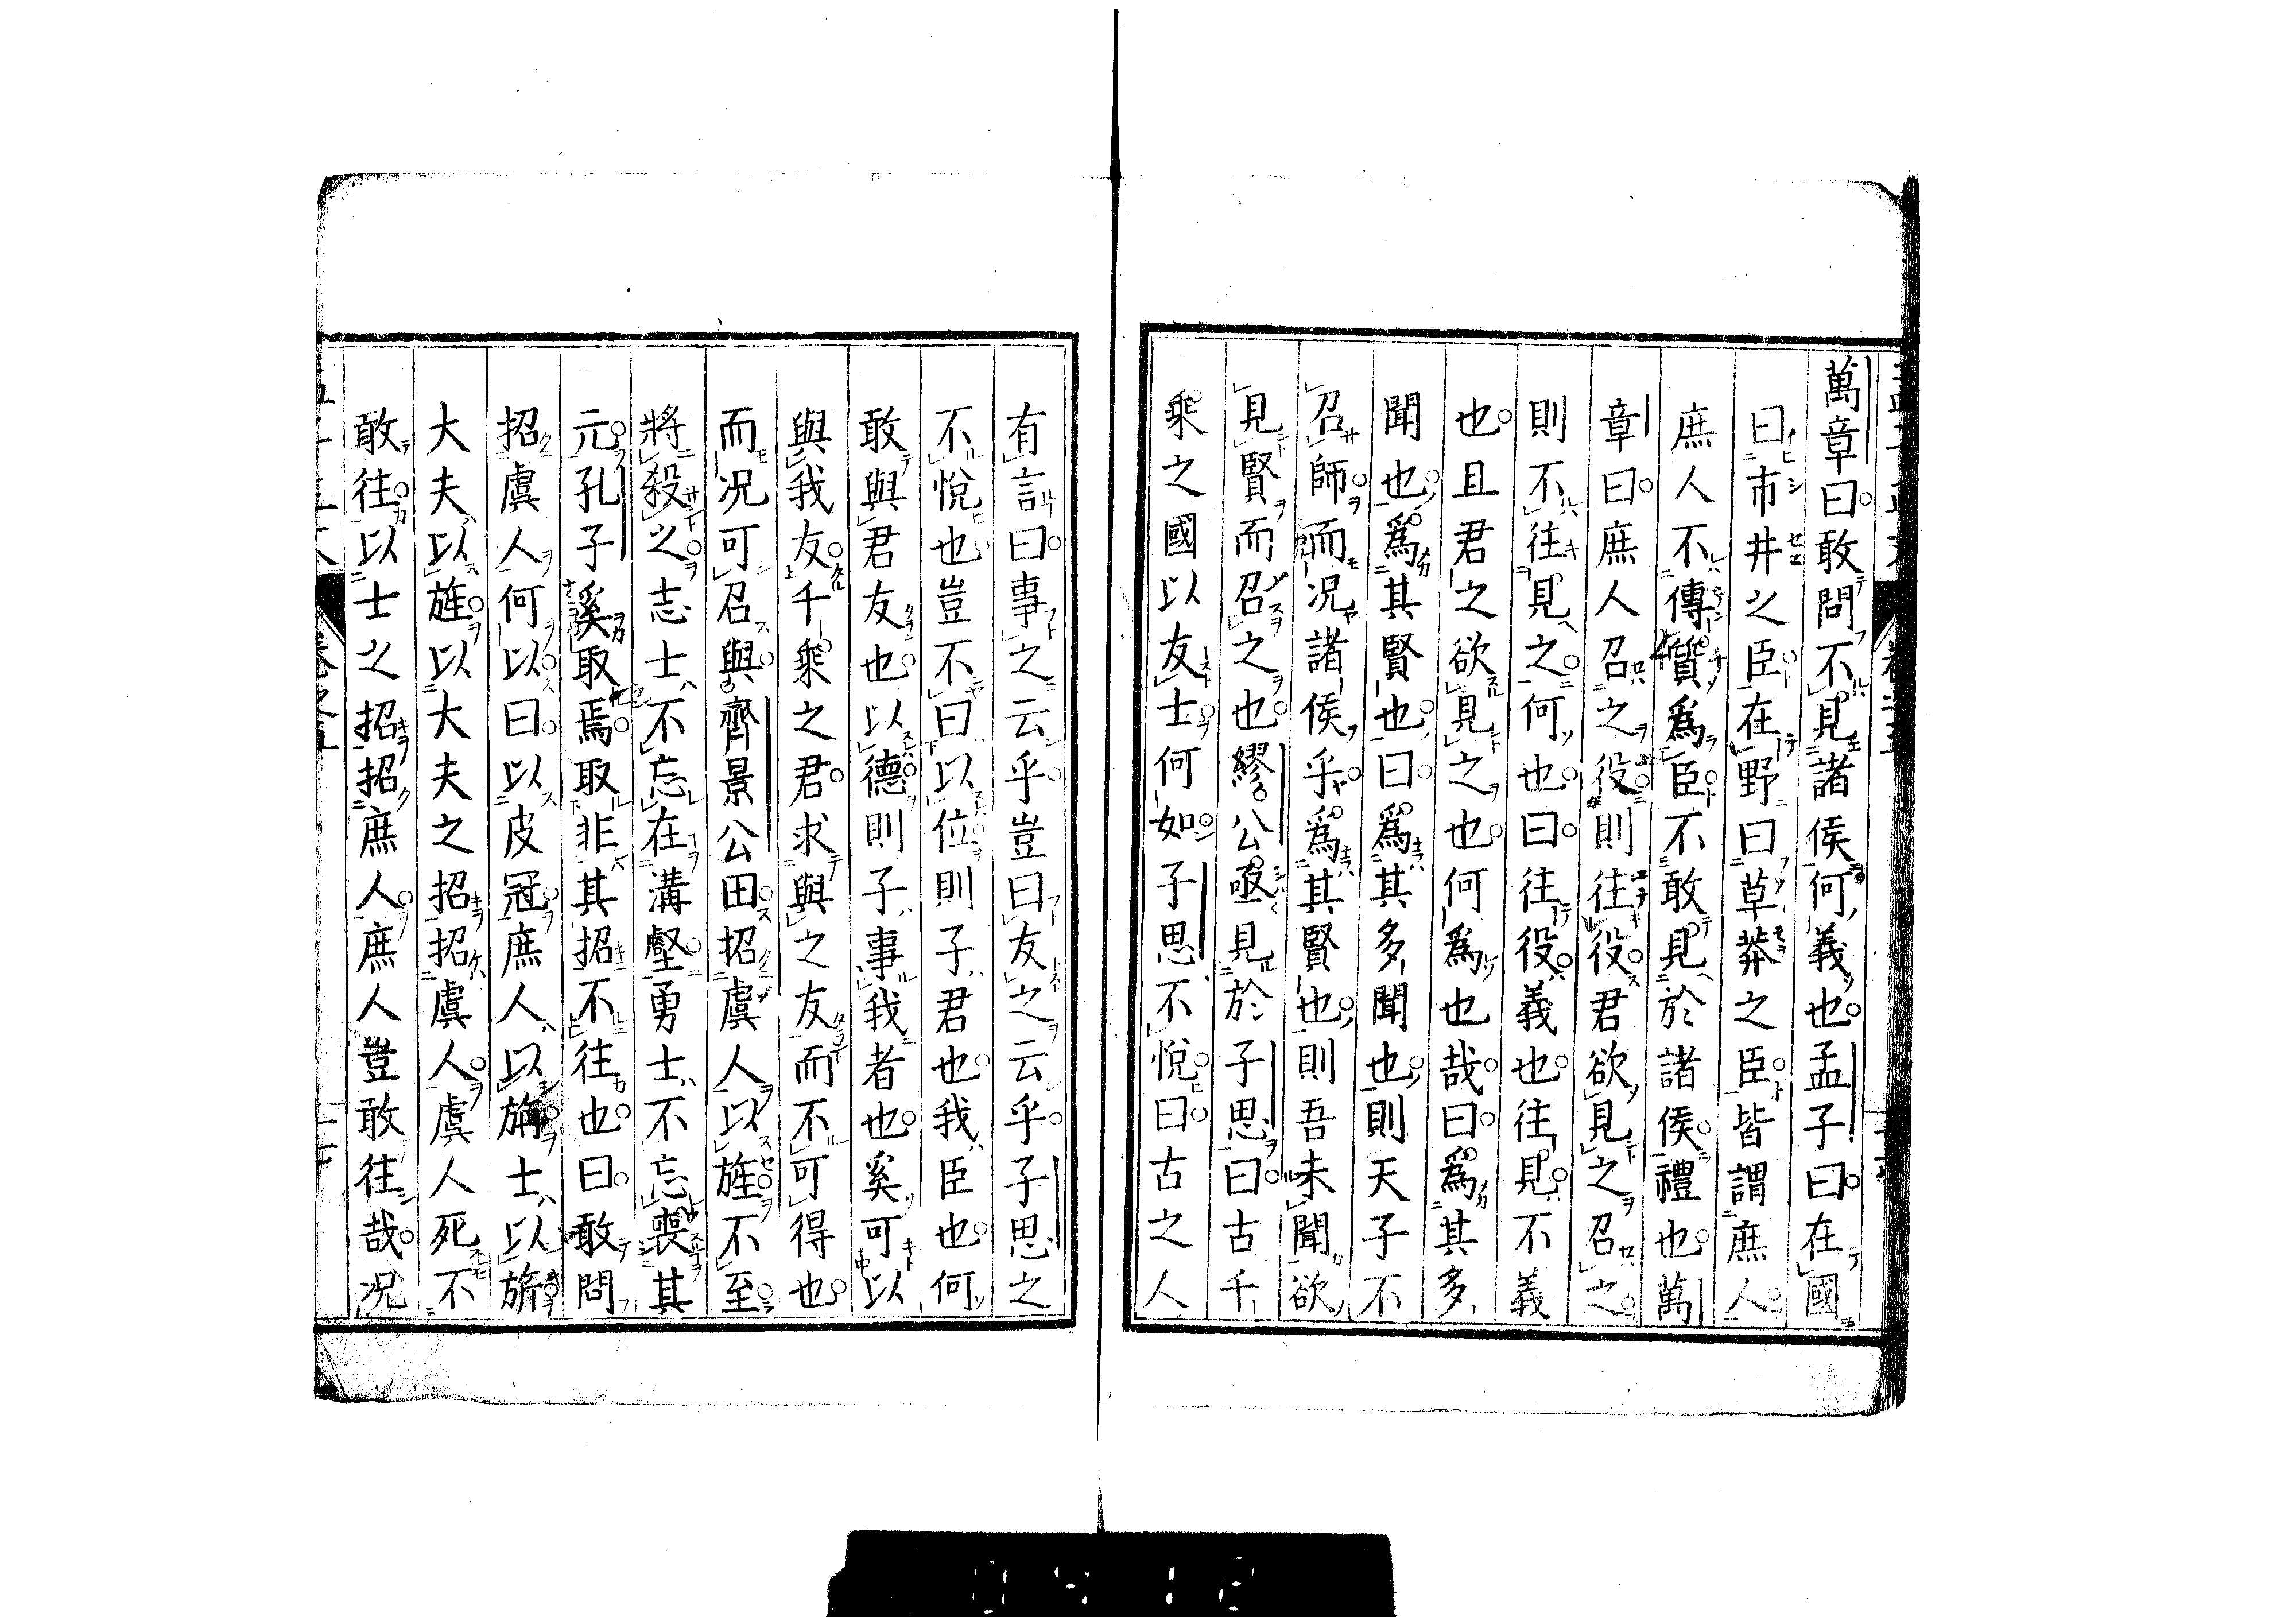 萬章曰敢問不見諸侯何義也孟子曰在國
曰市井之臣在野曰草莽之臣皆謂庶人
庶人不傳質爲臣不敢見於諸侯禮也萬
章曰庶人召之役則往役君欲見之召之
則不往見之何也曰往役義也往見不義
也且君之欲見之也何爲也哉曰爲其多
聞也爲其賢也曰爲其多聞也則天子不
召師而况諸侯乎爲其賢也則吾未聞欲
見賢而召之也繆公亟見於子思曰古千
乘之國以友士何如子思不悅曰古之人
有言曰事之云乎豈曰友之云乎子思之
不悅也豈不曰以位則子君也我臣也何
敢與君友也以德則子事我者也奚可以
與我友千乘之君求與之友而不可得也
而况可召與齊景公田招虞人以旌不至
將殺之志士不忘在溝壑勇士不忘喪其
元孔子奚取焉取非其招不往也曰敢問
招虞人何以曰以皮冠庶人以旃士以旂
大夫以旌以大夫之招招虞人虞人死不
敢往以士之招招庶人庶人豈敢往哉况